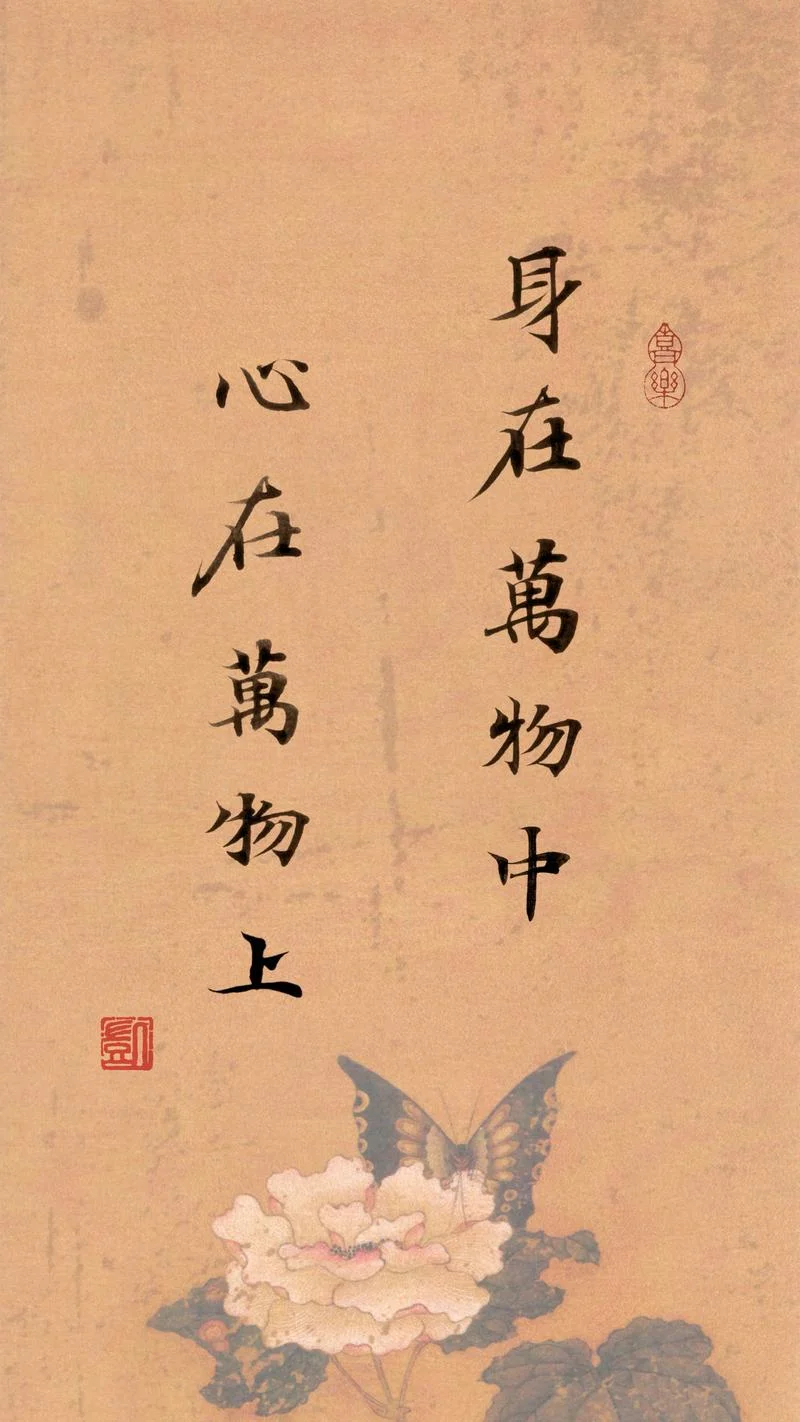 身在萬物中
心在萬物上
喜樂
凱